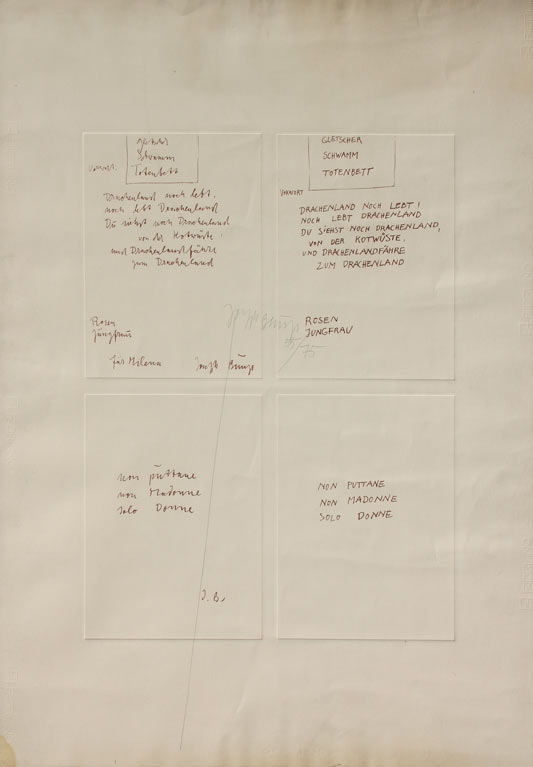 Gletscher
Schwamm
Totenbett
Vorwort:
Drachenland noch lebt,
noch lebt Drachenland
Du siehst noch Drachenland
von der Kotwüste!
und Drachenlandfähre
zum Drachenland
Rosen
Jungfrau
für Milena Joseph Beuys
GLETSCHER
SCHWAMM
TOTENBETT
VORWORT
DRACHENLAND NOCH LEBT!
NOCH LEBT DRACHENLAND
DU SIEHST NOCH DRACHENLAND,
VON DER KOTWÜSTE,
UND DRACHENLANDFÄHRE
ZUM DRACHENLAND
ROSEN
JUNGFRAU
Joseph Beuys
/75
non puttane
non Madonne
solo Donne
J. B.
NON PUTTANE
NON MADONNE
SOLO DONNE